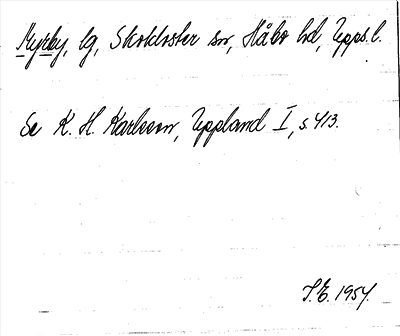 Myrby, lg, Skokloster sn, Håbo hd, Upps. l.
Se K. H. Karlsson, Uppland I, s. 413.
S.E. 1954.